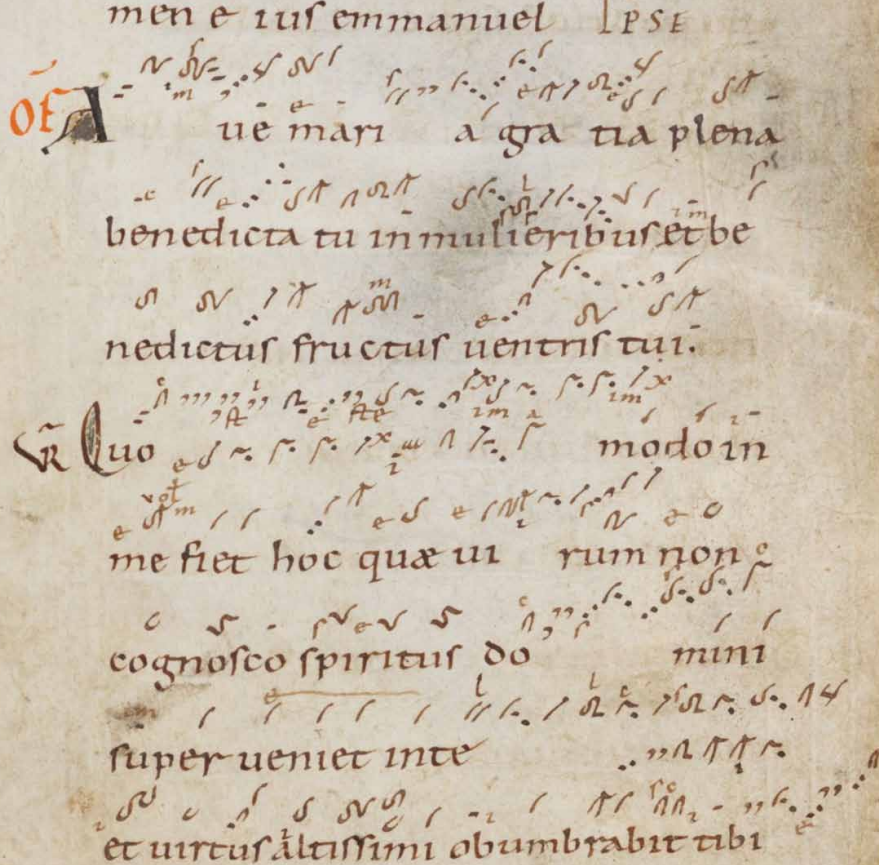 men e ius emmanuel IPSE
OF A ue mari a gra tia plena
benedicta tu in mulieribus et be
nedictus fructus uentris tui.
VR Quo modo in
me fiet hoc quæ ui rum non
cognosco spiritus do mini
superueniet inte
et uirtus altissimi obumbrabit tibi